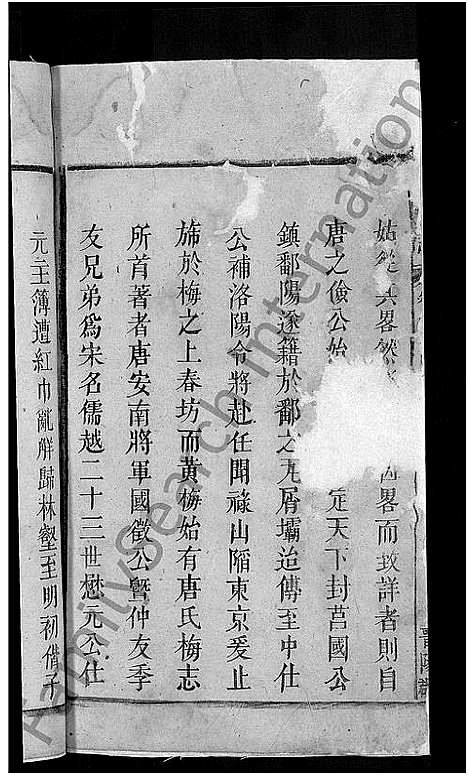 姑從其畧然 因畧而致詳者則自
唐之儉公始 定天下封莒國公
鎮鄱陽遂籍於鄱之瓦屑壩迨傳至中仕
公補洛陽令將赴任聞祿山陷東京爰止
斾於梅之上春坊而黃梅始有唐氏梅志
所首著者唐安南將軍國徵公曁仲友季
友兄弟爲宋名儒越二十三世懋元公仕
元主簿遭紅巾亂辭歸林壑至明初偕子
晋陽
FamilySearch International